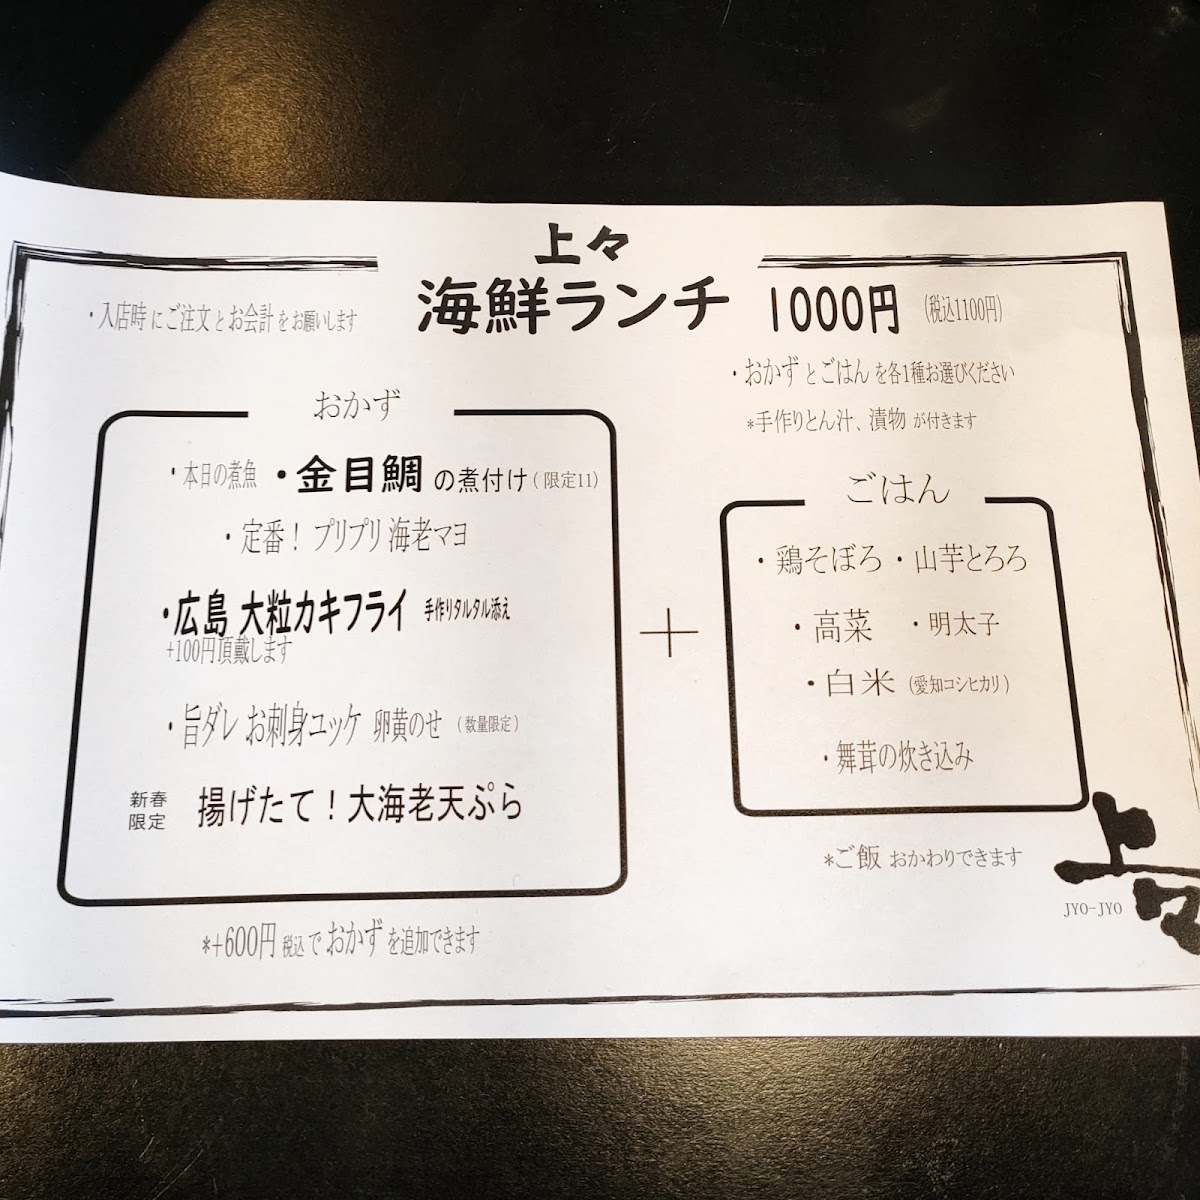 上々
海鮮ランチ 1000円 (税込1100円)
・入店時にご注文とお会計をお願いします
・おかずとごはんを各1種お選びください
*手作りとん汁、漬物 が付きます
おかず
・本日の煮魚 ・金目鯛の煮付け(限定11)
・定番！プリプリ海老マヨ
・広島 大粒カキフライ 手作りタルタル添え
+100円頂戴します
・旨ダレ お刺身ユッケ 卵黄のせ (数量限定)
新春限定 揚げたて！大海老天ぷら
*+600円 税込で おかずを追加できます
+
ごはん
・鶏そぼろ ・山芋とろろ
・高菜 ・明太子
・白米 (愛知コシヒカリ)
・舞茸の炊き込み
*ご飯 おかわりできます
上々
JYO-JYO